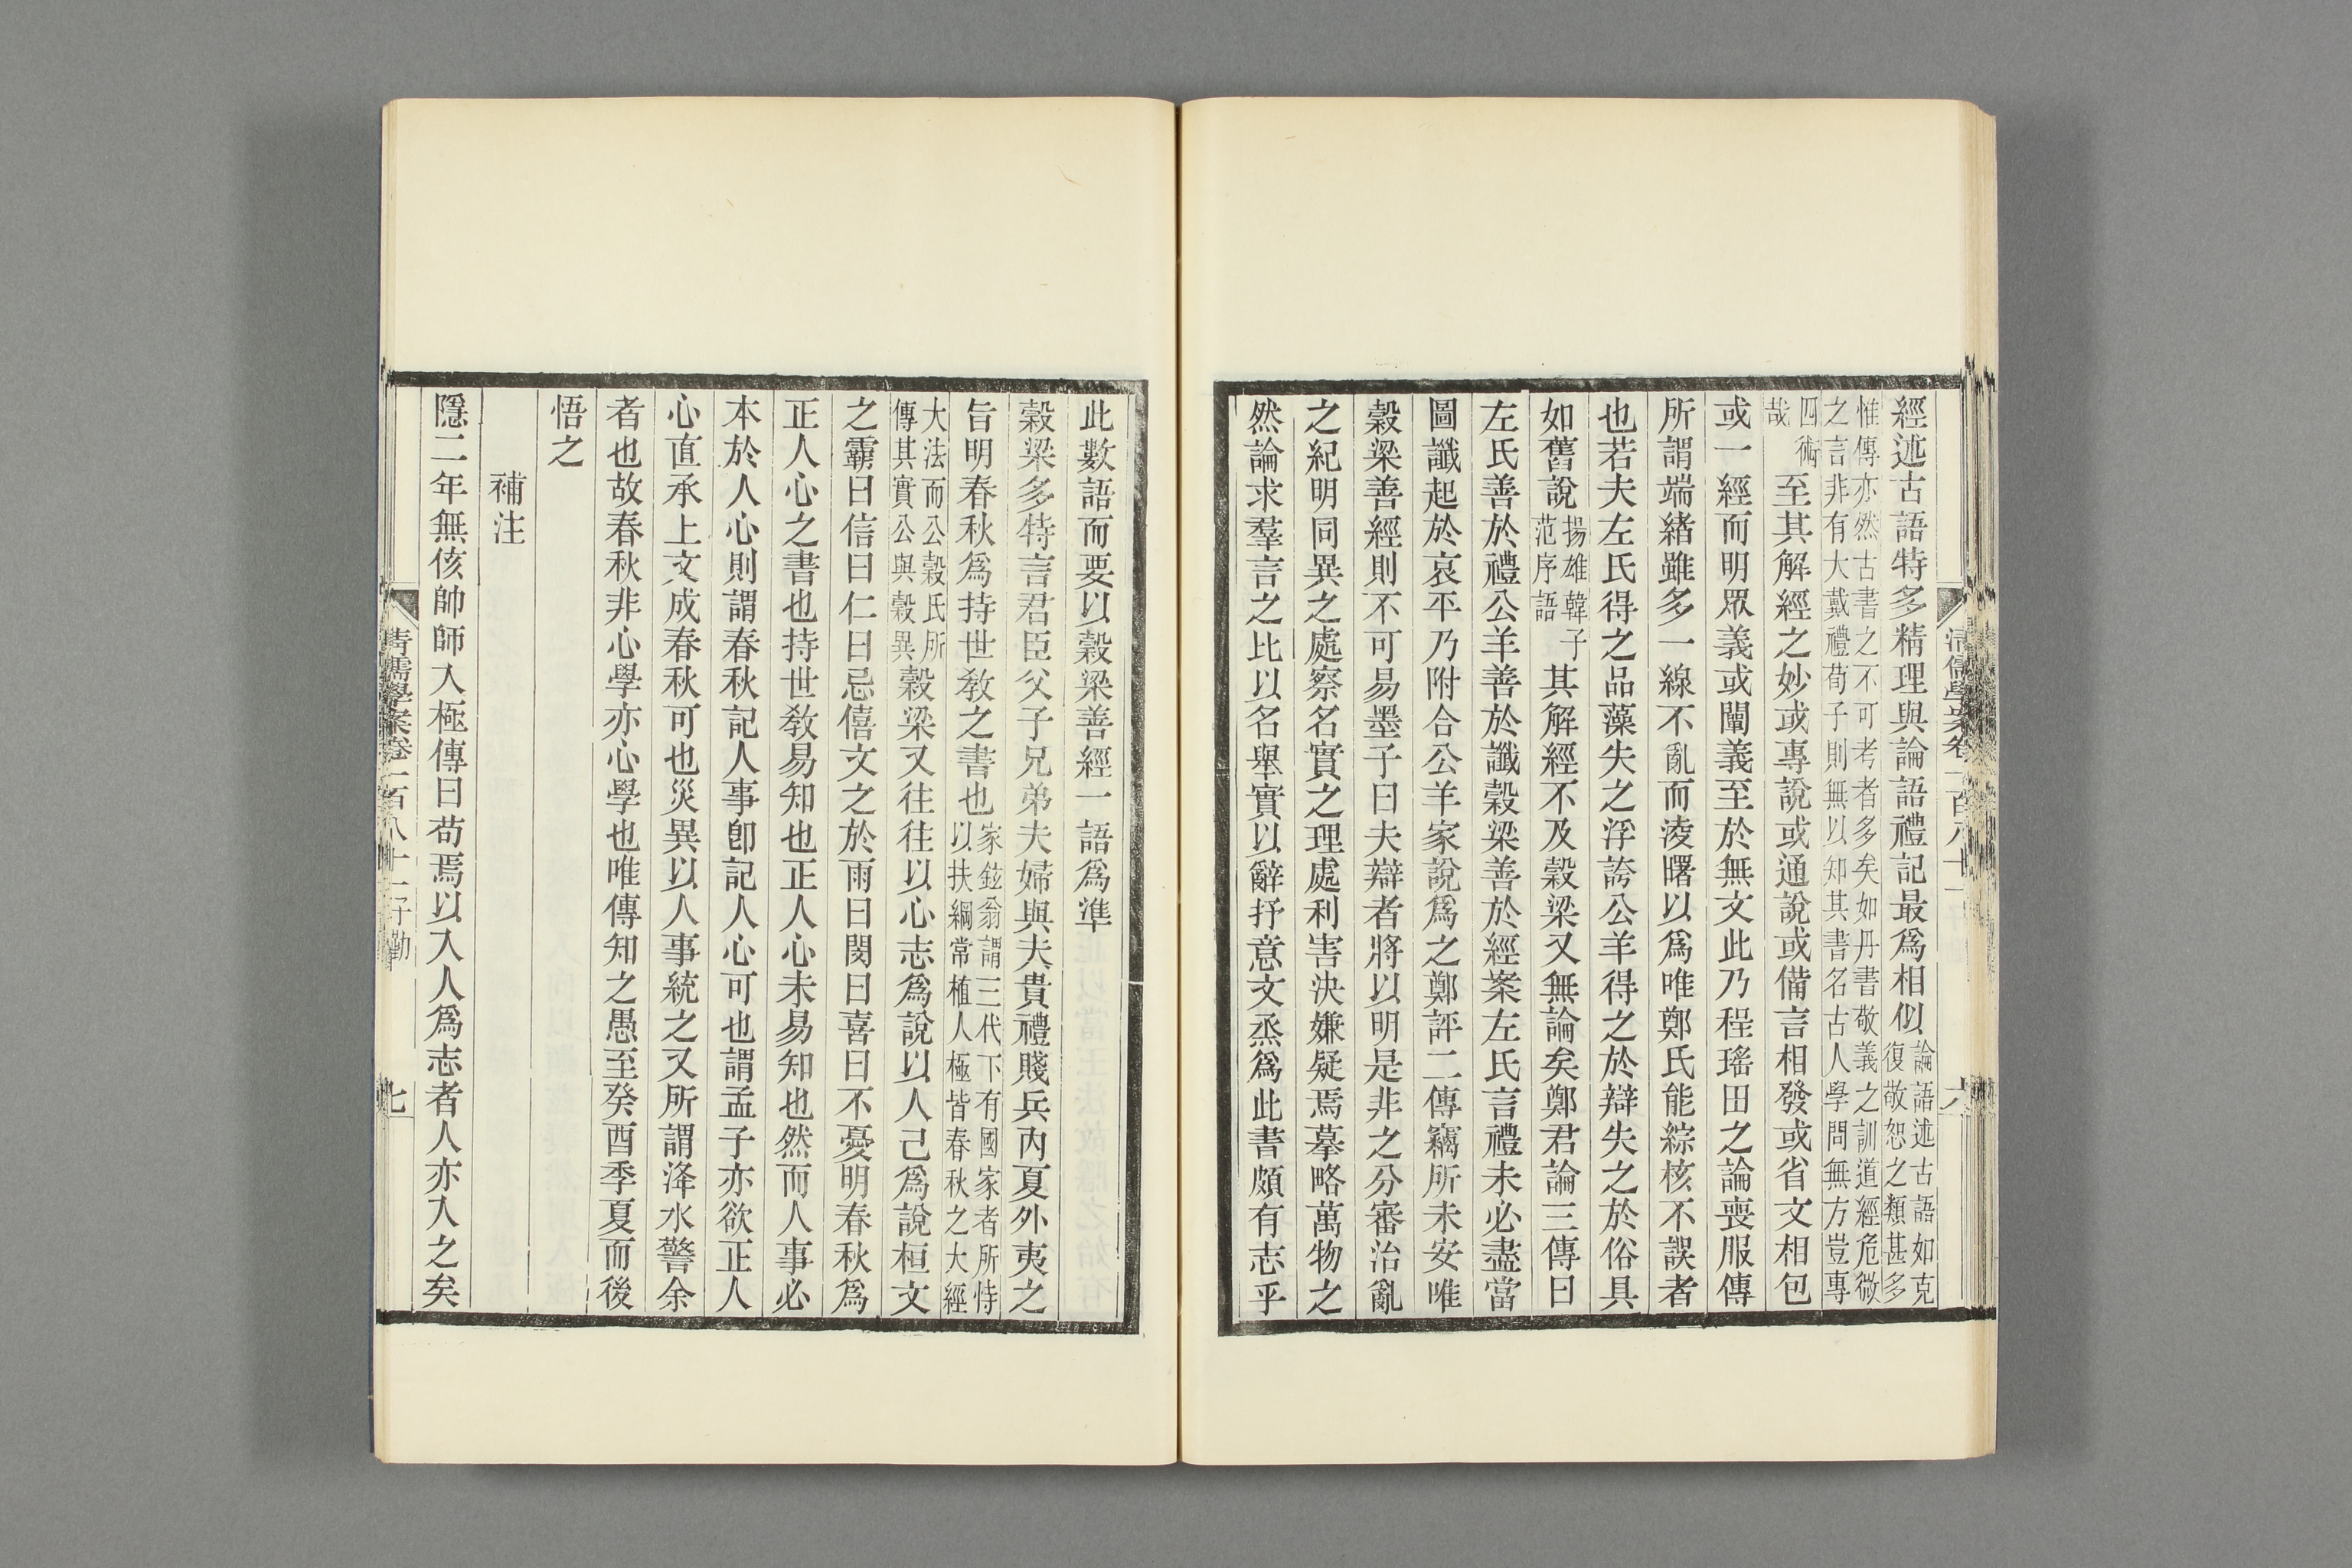 經述古語特多精理與論語禮記最爲相似論語述古語如克復敬恕之類甚多
惟傳亦然古書之不可考者多矣如丹書敬義之訓道經危微
之言非有大戴禮荀子則無以知其書名古人學問無方豈專
四術哉至其解經之妙或專說或通說或備言相發或省文相包
或一經而明眾義或闡義至於無文此乃程瑤田之論喪服傳
所謂端緒雖多一線不亂而淩曙以爲唯鄭氏能綜核不誤者
也若夫左氏得之品藻失之浮誇公羊得之於辯失之於俗具
如舊說揚雄韓子范序語其解經不及穀梁又無論矣鄭君論三傳曰
左氏善於禮公羊善於讖穀梁善於經案左氏言禮未必盡當
圖讖起於哀平乃附合公羊家說爲之鄭評二傳竊所未安唯
穀梁善經則不可易墨子曰夫辯者將以明是非之分審治亂
之紀明同異之處察名實之理處利害決嫌疑焉摹略萬物之
然論求羣言之比以名舉實以辭抒意文烝爲此書頗有志乎
清儒學案卷一百八十一
六
此數語而要以穀梁善經一語爲準
穀梁多特言君臣父子兄弟夫婦與夫貴禮賤兵內夏外夷之
旨明春秋爲持世敎之書也家鉉翁謂三代下有國家者所恃以扶綱常植人極皆春秋之大經
大法而公穀氏所傳其實公與穀異穀梁又往往以心志爲說以人己爲說桓文
之霸曰信曰仁曰忌僖文之於雨曰閔曰喜曰不憂明春秋爲
正人心之書也持世敎易知也正人心未易知也然而人事必
本於人心則謂春秋記人事卽記人心可也謂孟子亦欲正人
心直承上文成春秋可也災異以人事統之又所謂洚水警余
者也故春秋非心學亦心學也唯傳知之愚至癸酉季夏而後
悟之
補注
隱二年無侅帥師入極傳曰苟焉以入人爲志者人亦入之矣
清儒學案卷一百八十一子勤
七